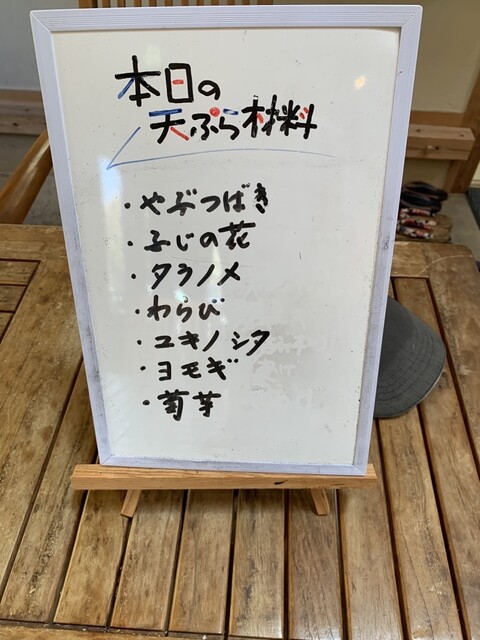 本日の
天ぷら材料
・やぶつばき
・ふじの花
・タラノメ
・わらび
・ユキノシタ
・ヨモギ
・菊芋